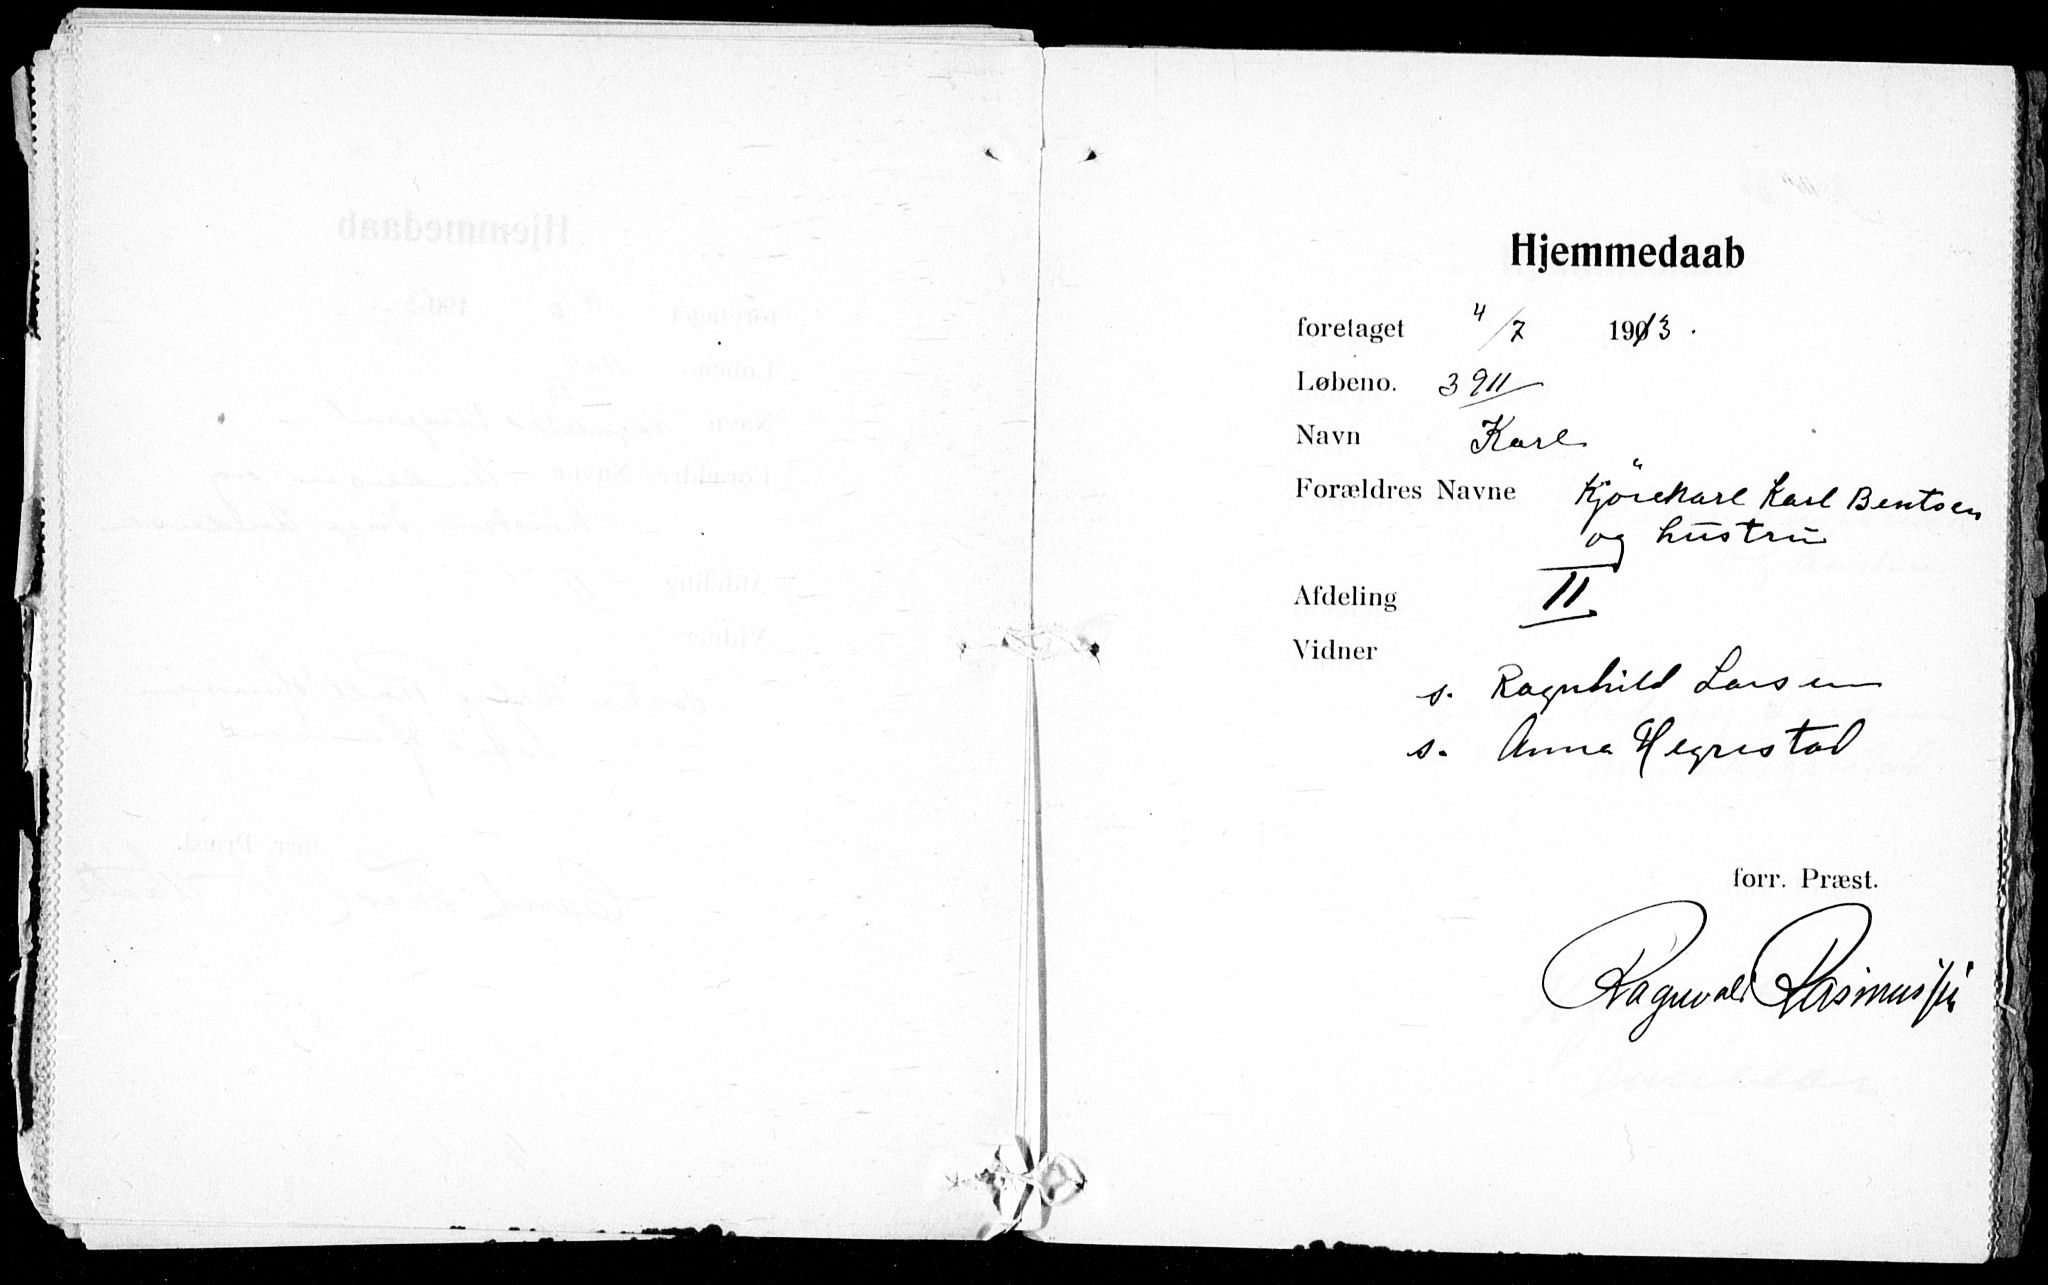 Hjemmedaab
foretaget 4/7 1913.
Løbeno. 3911
Navn Karl
Forældres Navne Kjörekarl Karl Bentsen
og hustru
Afdeling II
Vidner
s. Ragnhild Larsen
s. Anna Hegrestad
forr. Præst.
Ragnvald Rasmussen